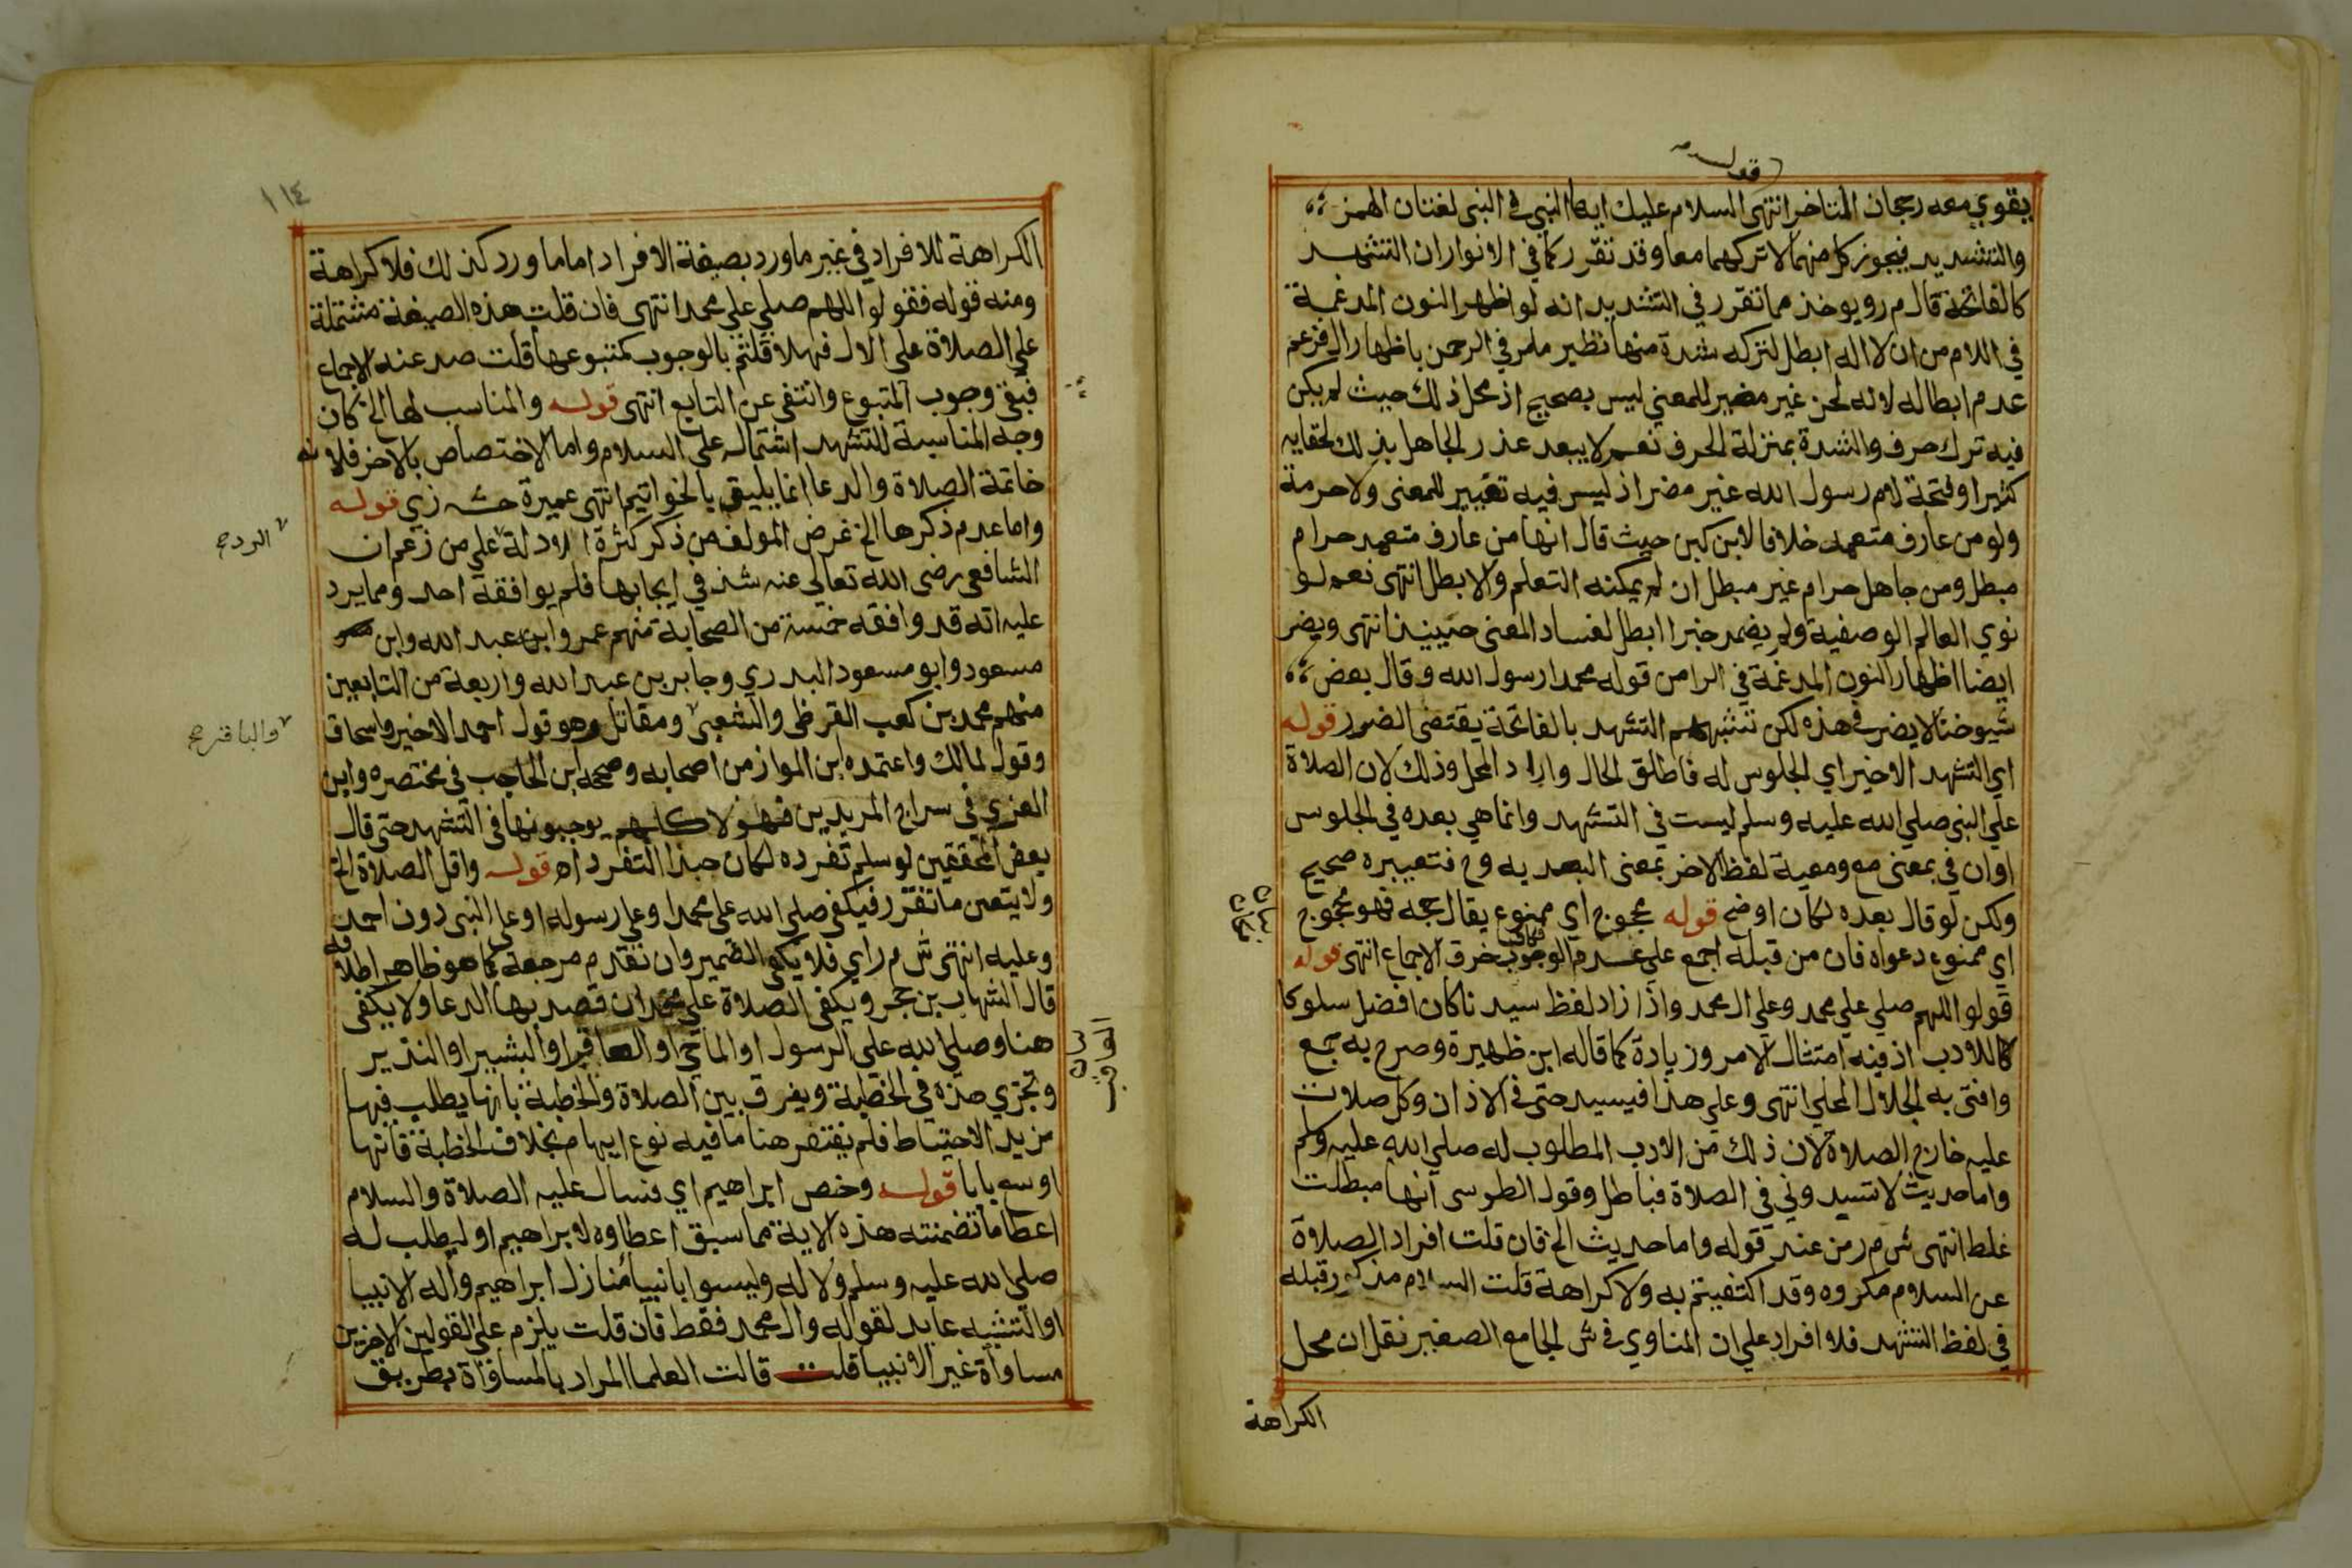 قوله
يقوي معه رجحان المتاخر انتهى السلام عليك ايها النبي في النبى لغتان الهمز
والتشديد فيجوز كل منهما لا تركهما معا وقد تقرر كما في الانوار ان التشهد
كالفاتحة قال م رو يوخذ مما تقرر في التشديد انه لو اظهر النون المدغمة
في اللام من ان لا اله ابطل لتركه شدة منها نظير ما مر في الرحمن باظهار ال فزعم
عدم ابطاله لانه لحن غير مغير للمعني ليس بصحيح اذ محل ذلك حيث لم يكن
فيه ترك حرف والشدة بمنزلة الحرف نعم لا يبعد عذر الجاهل بذلك لخفايه
كثيرا وفتحة لام رسول الله غير مضر اذ ليس فيه تغيير للمعنى ولا حرمة
ولو من عارف متعمد خلافا لابن كبن حيث قال انها من عارف متعمد حرام
مبطل ومن جاهل حرام غير مبطل ان لم يمكنه التعلم والا بطل انتهى نعم لو
نوي العالم الوصفية ولم يضمر خبرا ابطل لفساد المعنى حينيذ انتهى ويضر
ايضا اظهار النون المدغمة في الرا من قوله محمدا رسول الله وقال بعض
شيوخنا لا يضر في هذه لكن تشبيههم التشهد بالفاتحة يقتضى الضرر قوله
اي التشهد الاخير اي الجلوس له فاطلق الحال واراد المحل وذلك لان الصلاة
علي النبى صلي الله عليه وسلم ليست في التشهد وانما هي بعده في الجلوس
او ان في بمعنى مع ومعية لفظ الاخر بمعنى البعديه وح فتعبيره صحيح
ولكن لو قال بعده لكان اوضح قوله محجوج اي ممنوع يقال حجه فهو محجوج
اي ممنوع دعواه فان من قبله اجمع علي عدم الوجوب خرق الاجماع انتهى قوله
قولوا اللهم صلي علي محمد وعلي ال محمد واذا زاد لفظ سيدنا كان افضل سلوكا
كاللادب اذ فيه امتثال الامر وزيادة كما قاله ابن ظهيرة وصرح به جمع
وافتى به الجلال المحلي انتهى وعلي هذا فيسيد حتى في الاذان وكل صلات
عليه خارج الصلاة لان ذلك من الادب المطلوب له صلي الله عليه وسلم
واما حديث لا تسيدوني في الصلاة فباطل وقول الطوسى انها مبطلت
غلط انتهى ش م ر من عند قوله واما حديث الخ فان قلت افراد الصلاة
عن السلام مكروه وقد اكتفيتم به ولا كراهة قلت السلام مذكور قبله
في لفظ التشهد فلا افراد علي ان المناوي في ش الجامع الصغير نقل ان محل
الكراهة
١١٤
الكراهة للافراد في غير ما ورد بصيغة الافراد اما ما ورد كذلك فلا كراهة
ومنه قوله فقولوا اللهم صلي علي محمد انتهى فان قلت هذه الصيغة مشتملة
علي الصلاة على الال فهلا قلتم بالوجوب كمتبوعها قلت صد عنه الاجماع
فبقى وجوب المتبوع وانتفى عن التابع انتهى قوله والمناسب لها الخ كان
وجه المناسبة للتشهد اشتماله على السلام واما الاختصاص بالاخر فلانه
خاتمة الصلاة والدعا انما يليق بالخواتيم انتهى عميرة حش زي قوله
واما عدم ذكرها الخ غرض المولف من ذكر كثرة الادلة علي من زعم ان
الرد صح
الشافعى رضى الله تعالي عنه شذ في ايجابها فلم يوافقه احد ومما يرد
عليه انه قد وافقه خمسة من الصحابة منهم عمر وابن عبد الله وابن
مسعود وابو مسعود البدري وجابر بن عبد الله واربعة من التابعين
منهم محمد بن كعب القرظى والشعبى ومقاتل وهو قول احمد الاخير واسحاق
والباقر صح
وقول لمالك واعتمده ابن المواز من اصحابه وصححه ابن الحاجب في مختصره وابن
العزي في سراج المريدين فهولا كلهم يوجبونها في التشهد حتى قال
بعض المحققين لو سلم تفرده لكان حبذا التفرد اه قوله واقل الصلاة الخ
ولا يتعين ما تقرر فيكفى صلي الله على محمد او علي رسوله او على النبى دون احمد
وعليه انتهى ش م ر اي فلا يكفى الضمير وان تقدم مرجعه كما هو ظاهر اطلاقه
قال الشهاب بن حجر ويكفى الصلاة علي محمد ان قصد بها الدعا ولا يكفى
هنا وصلي الله على الرسول او الماحي او العاقب او البشير او النذير
العاقب
وتجزي هذه في الخطبة ويفرق بين الصلاة والخطبة بانها يطلب فيها
مزيد الاحتياط فلم يغتفر هنا ما فيه نوع ايهام بخلاف الخطبة فانها
اوسع بابا قوله وخص ابراهيم اي فسال عليه الصلاة والسلام
اعطا ما تضمنته هذه الاية مما سبق اعطاوه لابراهيم او ليطلب له
صلي الله عليه وسلم ولاله وليسوا بانبيا منازل ابراهيم واله الانبيا
او التشبيه عايد لقوله وال محمد فقط فان قلت يلزم على القولين الاخرين
مساواة غير الانبيا قلت قالت العلما المراد بالمساواة بطريق